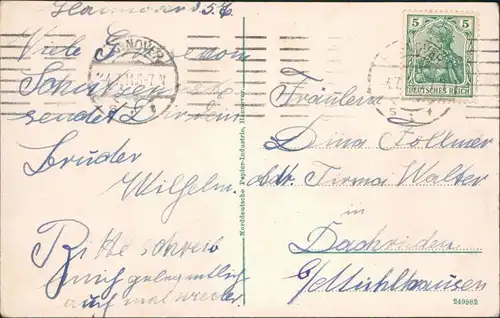 Hannover
Viele Grüße vom
Schützenfest
sendet Dir Dein
Bruder
Wilhelm.
Bitte schreib
mich gelegentlich
auch mal wieder.
HANNOVER
Norddeutsche Papier-Industrie, Hannover.
5 5
DEUTSCHES REICH
Fräulein
Dina Follmer
adr. Firma Walter
in
Dachrieden
b/Mühlhausen
249882